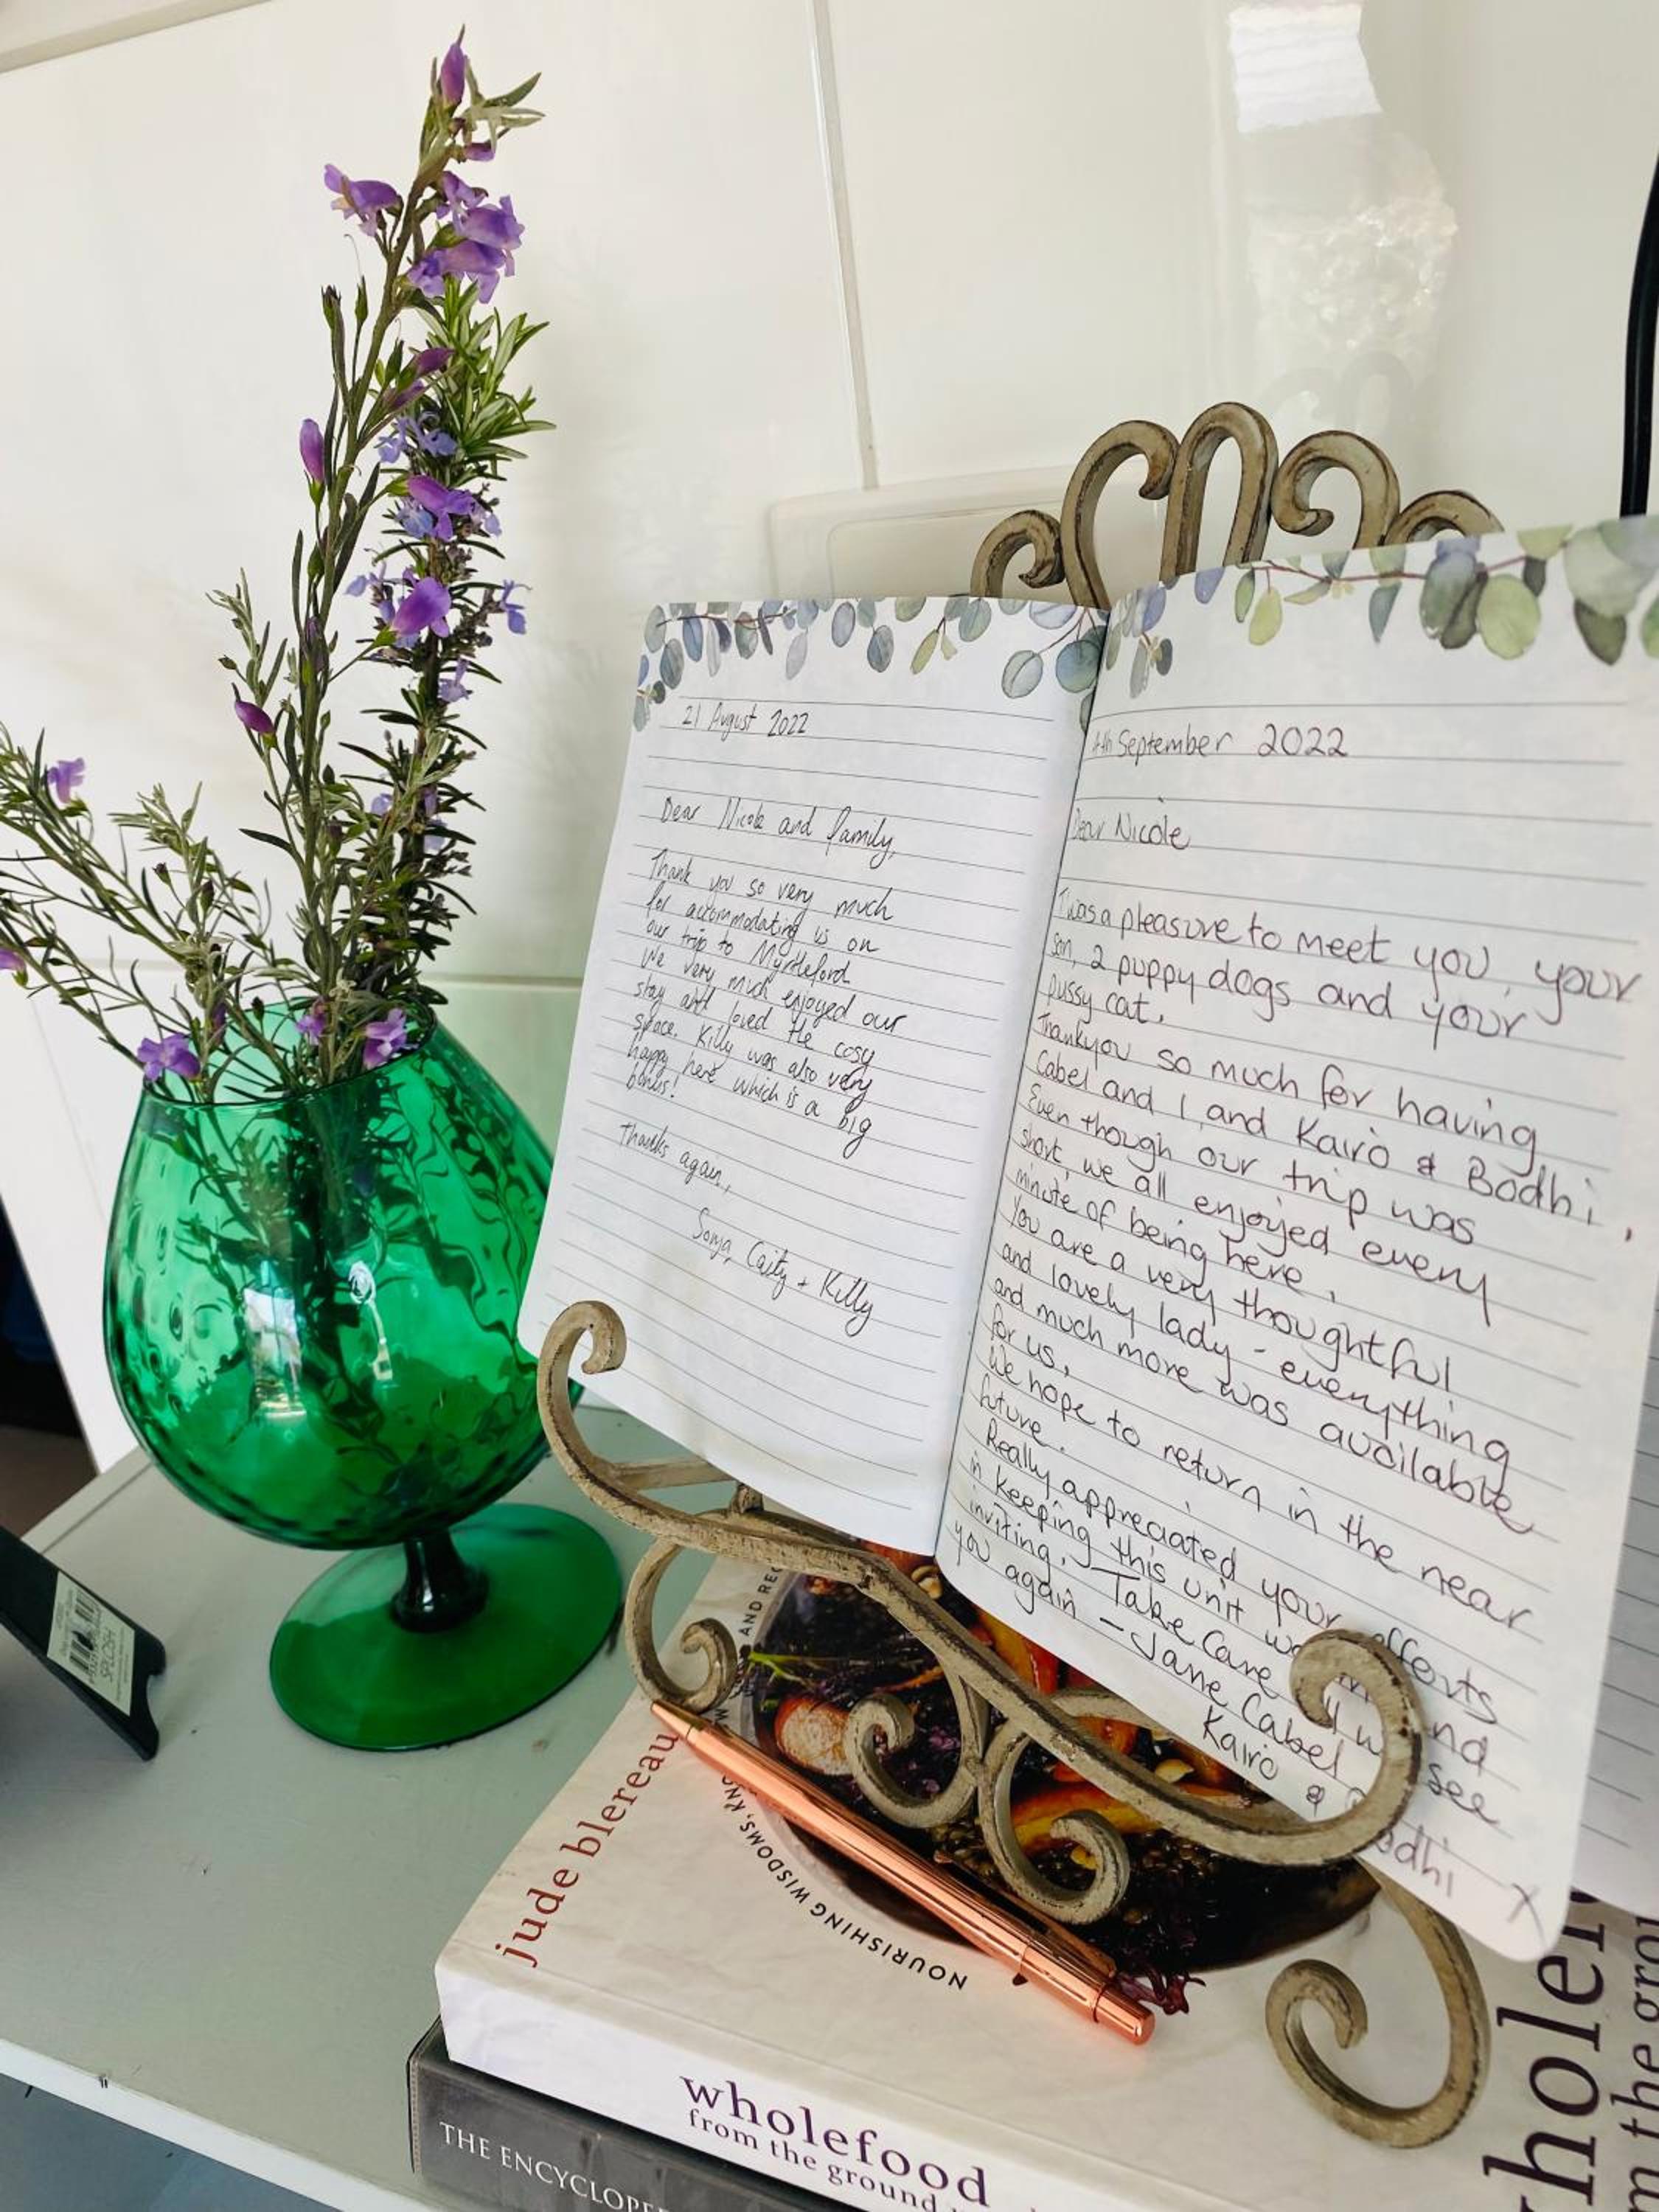 21 August 2022
Dear Nicole and family,
Thank you so very much
for accommodating us on
our trip to Myrtleford
We very much enjoyed our
stay and loved the cosy
space. Killy was also very
happy here which is a big
bonus!
Thanks again,
Sonja, Caity + Killy
4th September 2022
Dear Nicole
Twas a pleasure to meet you, your
son, 2 puppy dogs and your
pussy cat.
Thankyou so much for having
Cabel and I, and Kairo & Bodhi.
Even though our trip was
short, we all enjoyed every
minute of being here.
You are a very thoughtful
and lovely lady - everything
and much more was available
for us.
We hope to return in the near
future.
Really appreciated your efforts
in keeping this unit
inviting. Take Care
you again - Jane Cabel see
Kairo & Bodhi X
jude blereau
NOURISHING WISDOMS,
AND
wholefood
from the ground
THE ENCYCLOPE